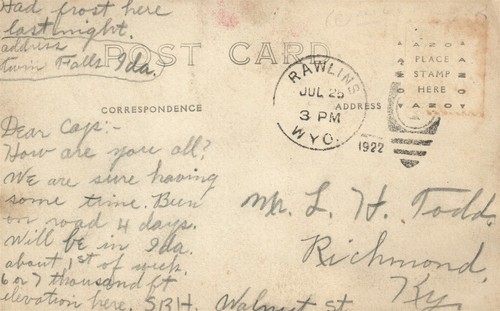 Had frost here
last night.
address
twin Falls Ida.
POST CARD
CORRESPONDENCE
ADDRESS
AZO
PLACE
STAMP
HERE
AZO
RAWLINS
JUL 25
3 PM
WYO.
1922
Dear Cap:-
How are you all?
We are sure having
some time. Been
on road 4 days.
Will be in Ida.
about 1st of week.
6 or 7 thousand ft
elevation here.
Walnut st.
Mr. L. H. Todd
Richmond,
Ky